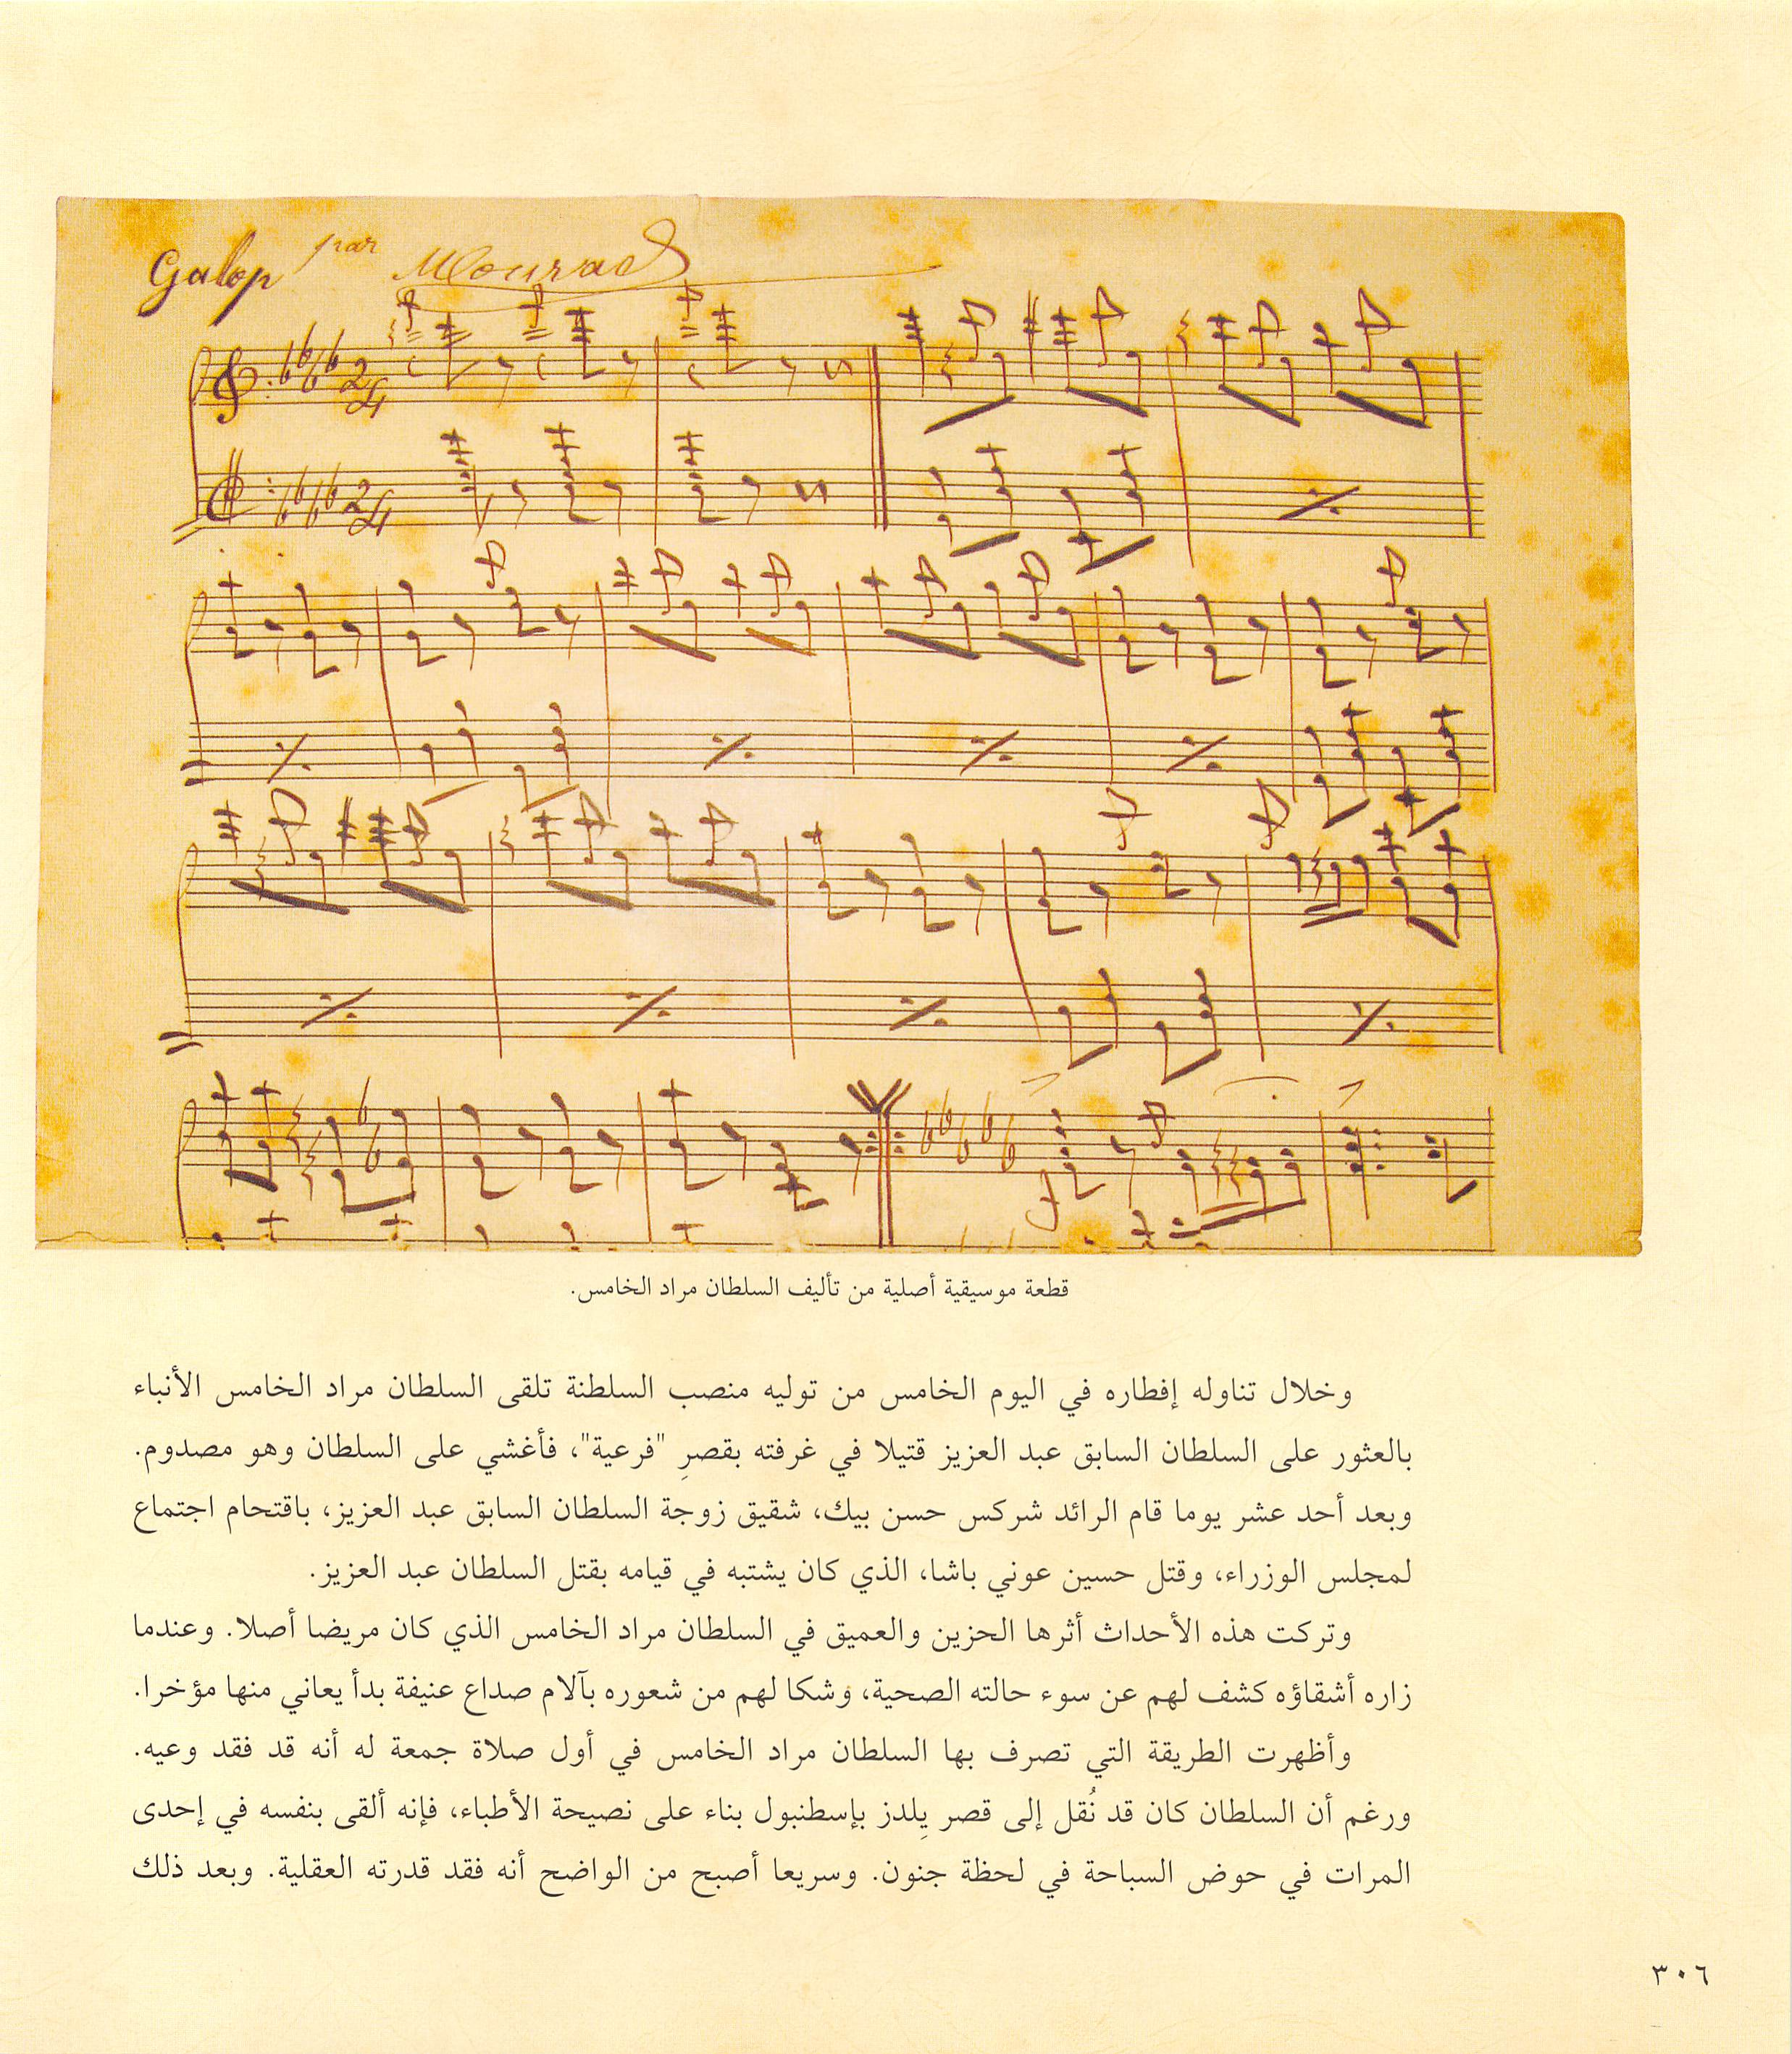 Galop par Mourad
قطعة موسيقية أصلية من تأليف السلطان مراد الخامس.
وخلال تناوله إفطاره في اليوم الخامس من توليه منصب السلطنة تلقى السلطان مراد الخامس الأنباء
بالعثور على السلطان السابق عبد العزيز قتيلا في غرفته بقصرِ "فرعية"، فأغشي على السلطان وهو مصدوم.
وبعد أحد عشر يوما قام الرائد شركس حسن بيك، شقيق زوجة السلطان السابق عبد العزيز، باقتحام اجتماع
لمجلس الوزراء، وقتل حسين عوني باشا، الذي كان يشتبه في قيامه بقتل السلطان عبد العزيز.
وتركت هذه الأحداث أثرها الحزين والعميق في السلطان مراد الخامس الذي كان مريضا أصلا. وعندما
زاره أشقاؤه كشف لهم عن سوء حالته الصحية، وشكا لهم من شعوره بآلام صداع عنيفة بدأ يعاني منها مؤخرا.
وأظهرت الطريقة التي تصرف بها السلطان مراد الخامس في أول صلاة جمعة له أنه قد فقد وعيه.
ورغم أن السلطان كان قد نُقل إلى قصر يِلدز بإسطنبول بناء على نصيحة الأطباء، فإنه ألقى بنفسه في إحدى
المرات في حوض السباحة في لحظة جنون. وسريعا أصبح من الواضح أنه فقد قدرته العقلية. وبعد ذلك
٣٠٦